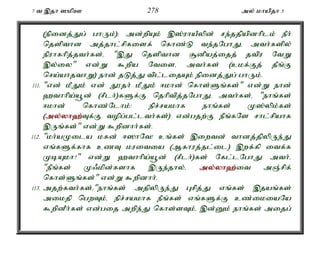 7 வ இதா ஸமிஊ 278 அல் மாயிதா 5
(நினைத்துப் பாரும்); அன்றியும் இஸ்ராயீலின் சந்ததியினரிடம் நீர்
தெளிவான அத்தாட்சிகளைக் கொண்டு வந்தபோது, அவர்களில்
நிராகரித்தவர்கள், "இது தெளிவான சூனியத்தைத் தவிர வேறு
இல்லை" என்று கூறிய வேளை, அவர்கள் (உமக்குத் தீங்கு
செய்யாதவாறு) நான் தடுத்து விட்டதையும் நினைத்துப் பாரும்.
111. "என் மீதும் என் தூதர் மீதும் ஈமான் கொள்ளுங்கள்" என்று நான்
ஹவாரிய்யூன் (சீடர்)களுக்கு தெரிவித்தபோது, அவர்கள், "நாங்கள்
ஈமான் கொண்டோம்; நிச்சயமாக நாங்கள் முஸ்லிம்கள்
(அல்லாஹ்வுக்கு வழிப்பட்டவர்கள்) என்பதற்கு நீங்களே சாட்சியாக
இருங்கள்" என்று கூறினார்கள்.
112. "மர்யமுடைய மகன் ஈஸாவே! உங்கள் இறைவன் வானத்திலிருந்து
எங்களுக்காக உணவு மரவையை (ஆகாரத்தட்டை) இறக்கி வைக்க
முடியுமா?" என்று ஹவாரிய்யூன் (சீடர்)கள் கேட்டபோது அவர்,
"நீங்கள் முஃமின்களாக இருந்தால், அல்லாஹ்வை அஞ்சிக்
கொள்ளுங்கள்" என்று கூறினார்.
113. அதற்கவர்கள்,"நாங்கள் அதிலிருந்து புசித்து எங்கள் இதயங்கள்
அமைதி பெறவும், நிச்சயமாக நீங்கள் எங்களுக்கு உண்மையையே
கூறினீர்கள் என்பதை அறிந்து கொள்ளவும், இன்னும் நாங்கள் அதைப்